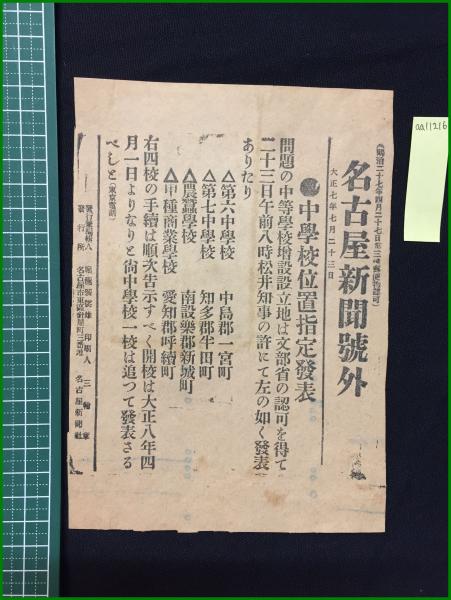 (明治三十七年四月二十七日第三種郵便物認可)
大正七年七月二十三日
名古屋新聞號外
中學校位置指定發表
問題の中等學校增設設立地は文部省の認可を得て
二十三日午前八時松井知事の許にて左の如く發表
ありたり
△第六中學校 中島郡一宮町
△第七中學校 知多郡半田町
△農蠶學校 南設樂郡新城町
△甲種商業學校 愛知郡呼續町
右四校の手續は順次告示すべく開校は大正八年四
月一日よりなりと尙中學校一校は追つて發表さる
べしと(東京電話)
發行兼編輯人 印刷人 三輪
發行所 名古屋市東區針屋町三番地 名古屋新聞社
aa11216